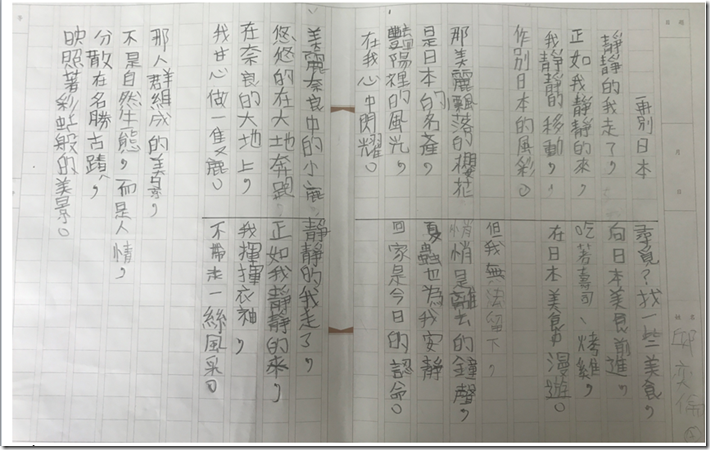 再別日本
靜靜的我走了,
正如我靜靜的來,
我靜靜的移動,
作別日本的風彩。
那美麗飄落的櫻花
是日本的名產,
豔陽裡的風光,
在我心中閃耀。
美麗奈良中的小鹿
悠悠的在大地奔跑
在奈良的大地上,
我甘心做一隻鹿。
那人群組成的美景,
不是自然生態,而是人情,
分散在名勝古蹟,
映照著彩虹般的美景。
尋覓?找一些美食,
向日本美食前進,
吃著壽司、烤雞,
在日本美食中漫遊。
但我無法留下,
悄悄是離去的鐘聲,
夏蟲也為我安靜
回家是今日的認命。
靜靜的我走了,
正如我靜靜的來,
我揮揮衣袖,
不帶走一絲風采。